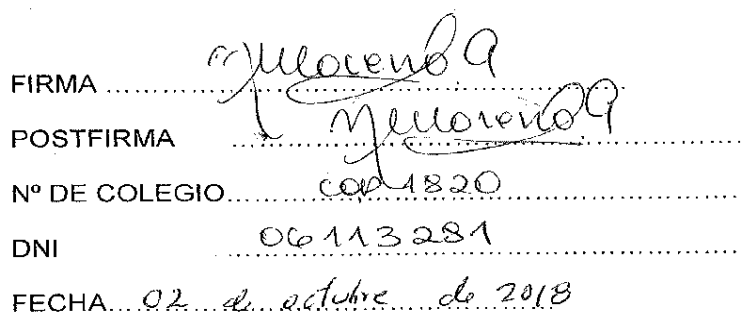 FIRMA ........ MMorenoA
POSTFIRMA ........ MMorenoA
Nº DE COLEGIO..... cop 1820
DNI ........ 06113281
FECHA... 02 de octubre de 2018